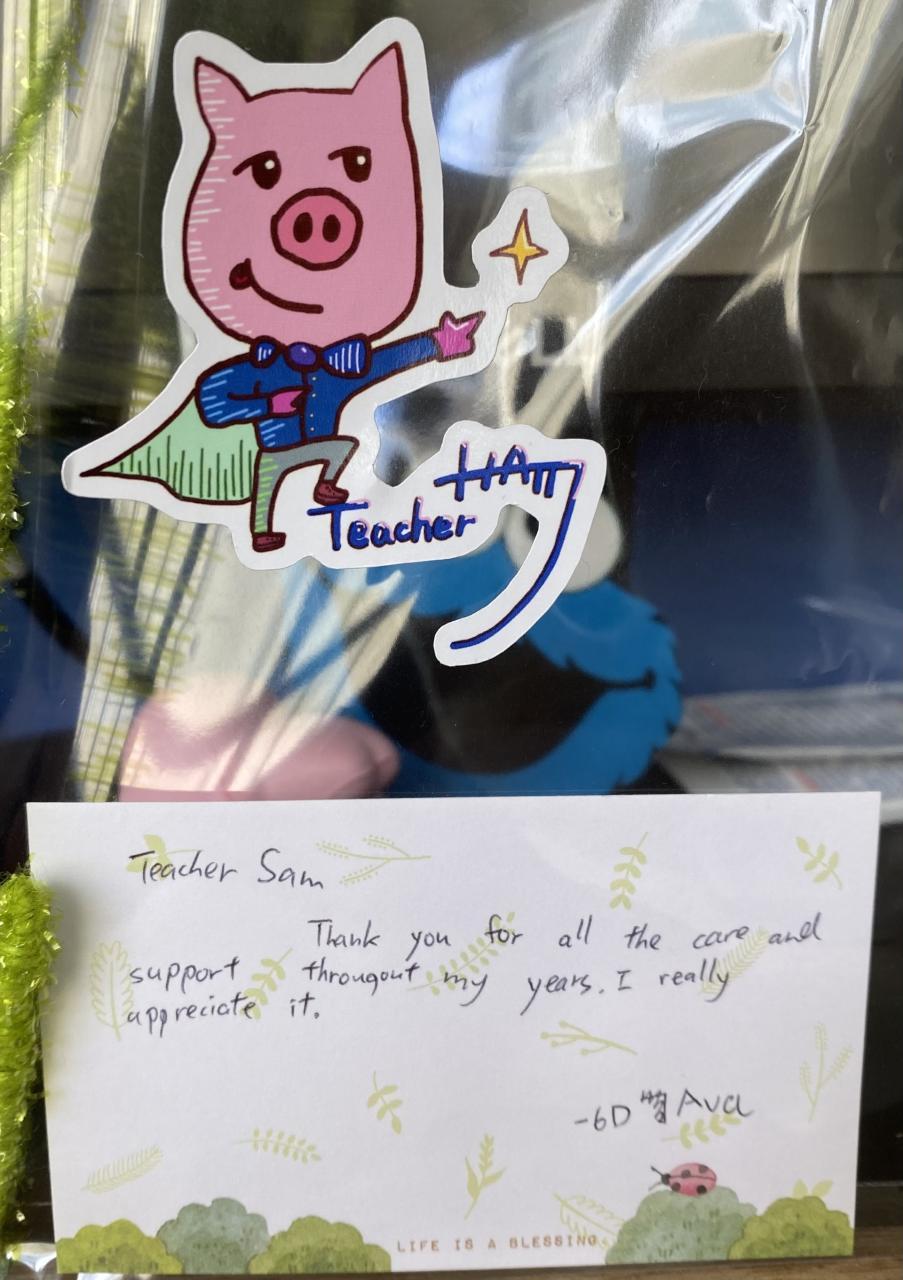 Teacher
Teacher Sam
Thank you for all the care and
support througout my years. I really
appreciate it.
-6D Ava
LIFE IS A BLESSING